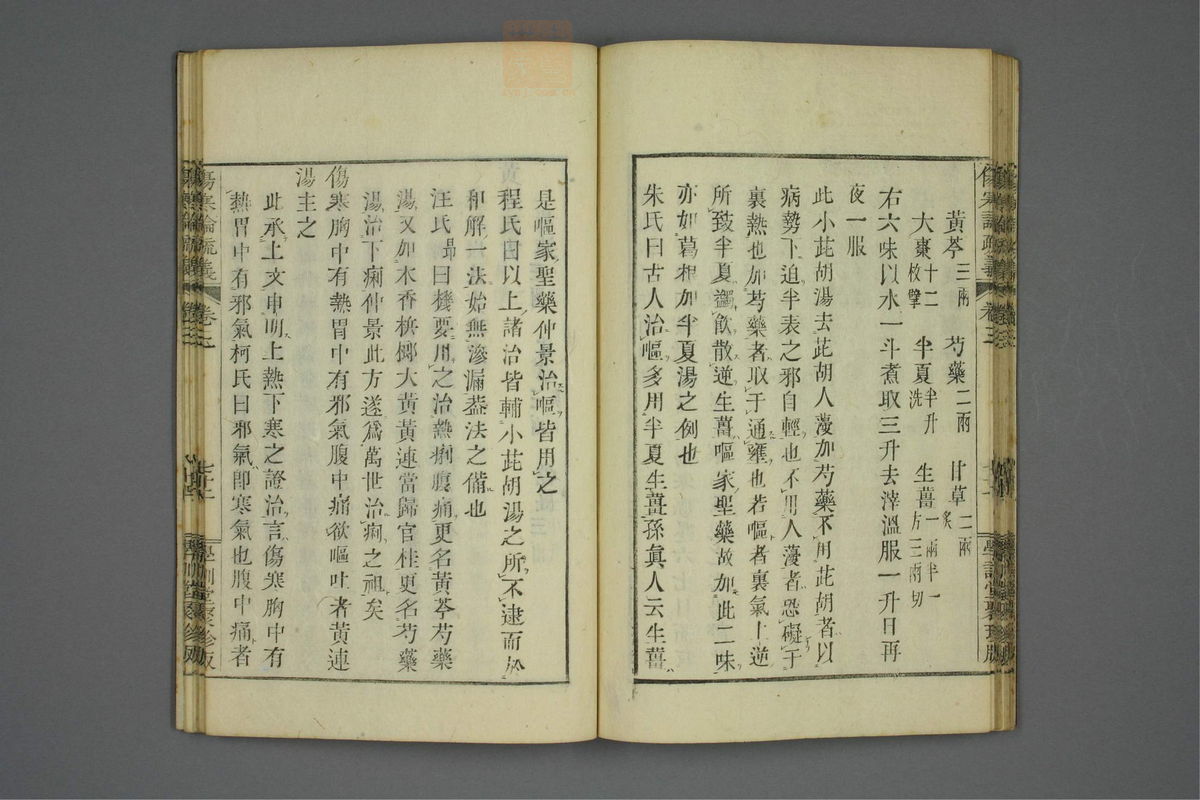 黃芩三兩　芍藥二兩　甘草二兩炙
大棗十二枚擘　半夏半升洗　生薑一兩半一方三兩切
右六味以水一斗煮取三升去滓溫服一升日再
夜一服
此小茈胡湯去茈胡人薓加芍藥不用茈胡者以
病勢下迫半表之邪自輕也不用人薓者恐礙于
裏熱也加芍藥者取于通壅也若嘔者裏氣上逆
所致半夏蠲飮散逆生薑嘔家聖藥故加此二味
亦如葛根加半夏湯之例也
朱氏曰古人治嘔多用半夏生薑孫眞人云生薑
是嘔家聖藥仲景治嘔皆用之
程氏曰以上諸治皆輔小茈胡湯之所不逮而於
和解一法始無滲漏葢法之備也
汪氏昻曰機要用之治熱痢腹痛更名黃芩芍藥
湯又加木香檳榔大黃黃連當歸官桂更名芍藥
湯治下痢仲景此方遂爲萬世治痢之祖矣
傷寒胸中有熱胃中有邪氣腹中痛欲嘔吐者黃連
湯主之
此承上文申明上熱下寒之證治言傷寒胸中有
熱胃中有邪氣柯氏曰邪氣卽寒氣也腹中痛者
傷寒論疏義　卷三　學訓堂聚珍版